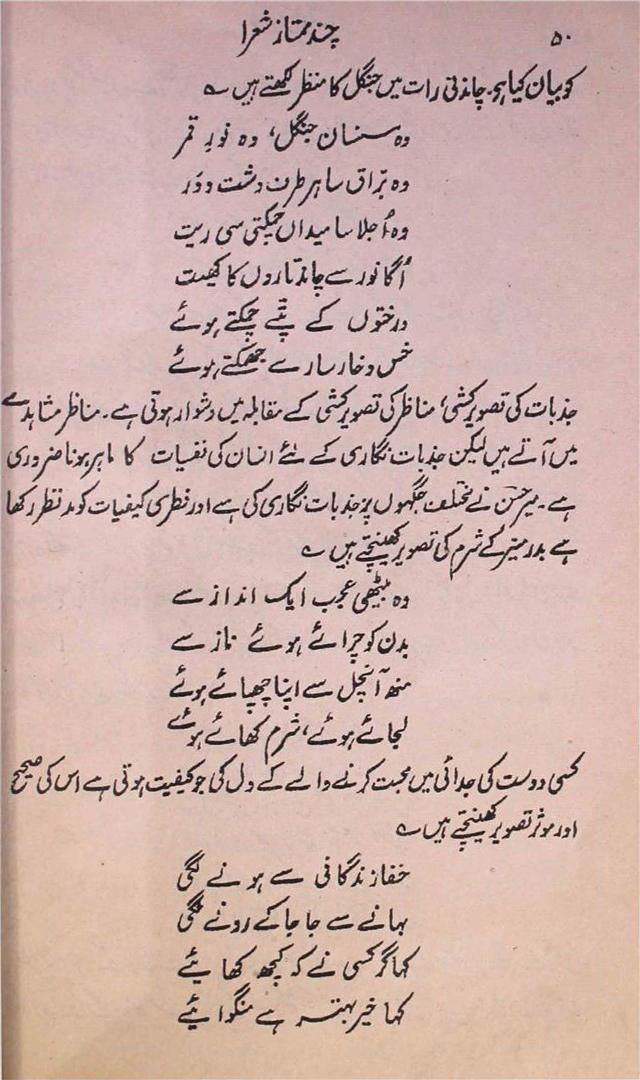 ۵۰
چند ممتاز شعرا
کو بیان کیا ہو۔ چاندنی رات میں جنگل کا منظر لکھتے ہیں ؎
وہ سنسان جنگل، وہ نورِ قمر
وہ برّاق سا ہر طرف دشت و دَر
وہ اُجلا سا میداں چمکتی سی ریت
اُگا نور سے چاند تاروں کا کھیت
درختوں کے پتّے چمکتے ہوئے
خس و خار سارے جھمکتے ہوئے
جذبات کی تصویر کشی، مناظر کی تصویر کشی کے مقابلہ میں دشوار ہوتی ہے۔ مناظر مشاہدے
میں آتے ہیں لیکن جذبات نگاری کے لئے انسان کی نفسیات کا ماہر ہونا ضروری
ہے۔ میر حسن نے مختلف جگہوں پر جذبات نگاری کی ہے اور فطری کیفیات کو مد نظر رکھا
ہے بدر منیر کے شرم کی تصویر کھینچتے ہیں ؎
وہ بیٹھی عجب ایک انداز سے
بدن کو چرائے ہوئے ناز سے
منھ آنچل سے اپنا چھپائے ہوئے
لجائے ہوئے، شرم کھائے ہوئے
کسی دوست کی جدائی میں محبت کرنے والے کے دل کی جو کیفیت ہوتی ہے اس کی صحیح
اور موثر تصویر کھینچتے ہیں ؎
خفا زندگانی سے ہونے لگی
بہانے سے جا جا کے رونے لگی
کہا گر کسی نے کہ کچھ کھایئے
کہا خیر بہتر ہے منگوایئے